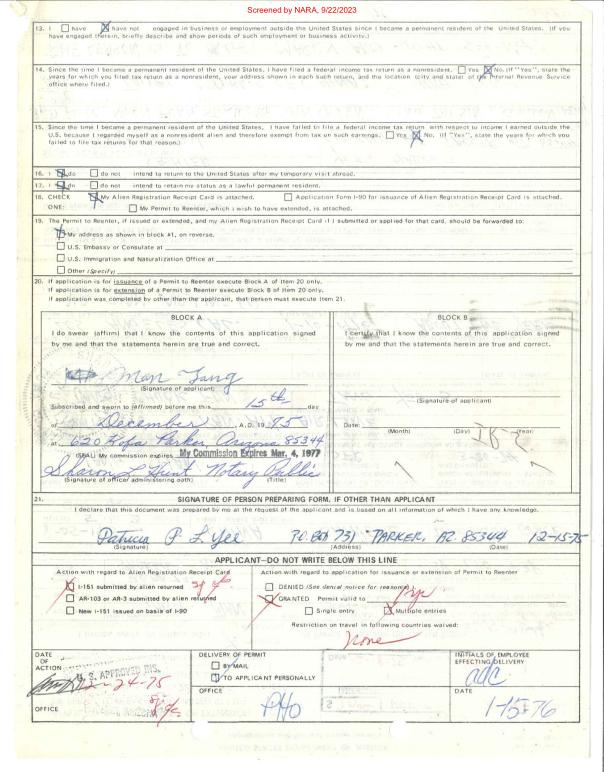 Screened by NARA, 9/22/2023
13. I have have not engaged in business or employment outside the United States since I became a permanent resident of the United States. (If you
have engaged therein, briefly describe and show periods of such employment or business activity.)
14. Since the time I became a permanent resident of the United States, I have filed a federal income tax return as a nonresident. Yes No. (If "Yes", state the
years for which you filed tax return as a nonresident, your address shown in each such return, and the location (city and state) of the Internal Revenue Service
office where filed.)
15. Since the time I became a permanent resident of the United States, I have failed to file a federal income tax return with respect to income I earned outside the
U.S. because I regarded myself as a nonresident alien and therefore exempt from tax on such earnings. Yes No. (If "Yes", state the years for which you
failed to file tax returns for that reason.)
16. I do do not intend to return to the United States after my temporary visit abroad.
17. I do do not intend to retain my status as a lawful permanent resident.
18. CHECK My Alien Registration Receipt Card is attached. Application Form I-90 for issuance of Alien Registration Receipt Card is attached.
ONE: My Permit to Reenter, which I wish to have extended, is attached.
19. The Permit to Reenter, if issued or extended, and my Alien Registration Receipt Card if I submitted or applied for that card, should be forwarded to:
My address as shown in block #1, on reverse.
U.S. Embassy or Consulate at
U.S. Immigration and Naturalization Office at
Other (Specify)
20. If application is for issuance of a Permit to Reenter execute Block A of Item 20 only.
If application is for extension of a Permit to Reenter execute Block B of Item 20 only.
If application was completed by other than the applicant, that person must execute Item 21.
BLOCK A
I do swear (affirm) that I know the contents of this application signed
by me and that the statements herein are true and correct.
Man Tang
(Signature of applicant)
Subscribed and sworn to (affirmed) before me this 15th day
of December A.D. 19 75
at 620 Kofa Parker, Arizona 85344
(SEAL) My commission expires My Commission Expires Mar. 4, 1977
Sharon L Hunt Notary Public
(Signature of officer administering oath) (Title)
BLOCK B
I certify that I know the contents of this application signed
by me and that the statements herein are true and correct.
(Signature of applicant)
Date:
(Month) (Day) (Year)
21. SIGNATURE OF PERSON PREPARING FORM, IF OTHER THAN APPLICANT
I declare that this document was prepared by me at the request of the applicant and is based on all information of which I have any knowledge.
Patricia P L Yee P.O. BOX 731 PARKER, AZ. 85344 12-15-75
(Signature) (Address) (Date)
APPLICANT—DO NOT WRITE BELOW THIS LINE
Action with regard to Alien Registration Receipt Card
I-151 submitted by alien returned
AR-103 or AR-3 submitted by alien returned
New I-151 issued on basis of I-90
Action with regard to application for issuance or extension of Permit to Reenter
DENIED (See denial notice for reasons)
GRANTED Permit valid to
Single entry Multiple entries
Restriction on travel in following countries waived:
None
DATE
OF
ACTION
U. S. APPROVED INS.
12-24-75
OFFICE
DELIVERY OF PERMIT
BY MAIL
TO APPLICANT PERSONALLY
OFFICE
PHO
INITIALS OF EMPLOYEE
EFFECTING DELIVERY
adc
DATE
1-15-76